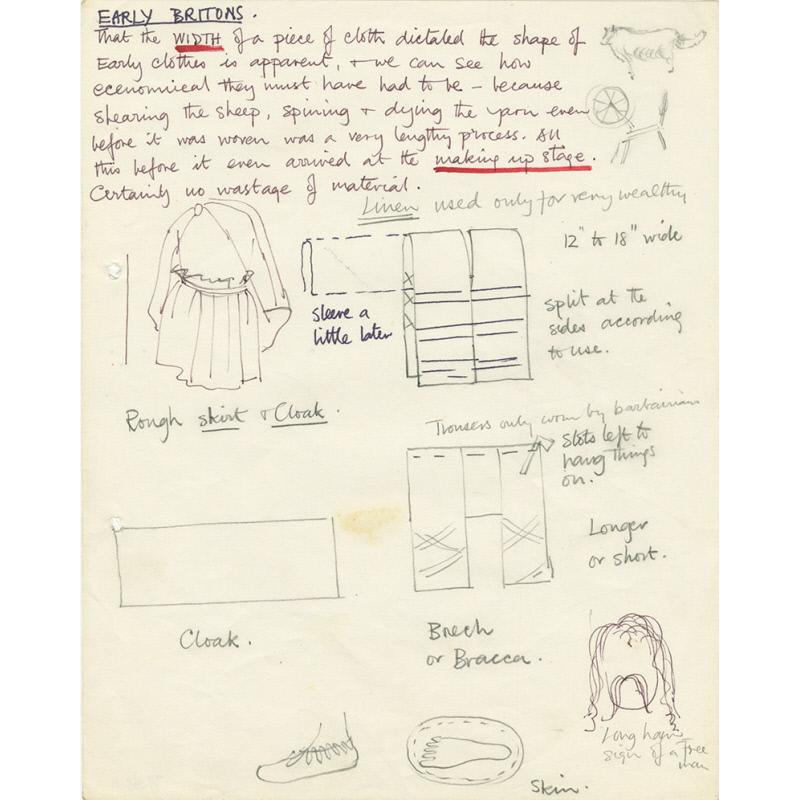 EARLY BRITONS.
That the WIDTH of a piece of cloth dictated the shape of
Early clothes is apparent, & we can see how
economical they must have had to be - because
shearing the sheep, spining & dying the yarn even
before it was woven was a very lengthy process. All
this before it even arrived at the making up stage.
Certainly no wastage of material.
Linen used only for very wealthy
12" to 18" wide
sleeve a
little later
split at the
sides according
to use.
Rough skirt & Cloak.
Trousers only worn by barbarians
Slots left to
hang things
on.
Longer
or short.
Cloak.
Brech
or Bracca.
Long hair
sign of a free
man
Skin.